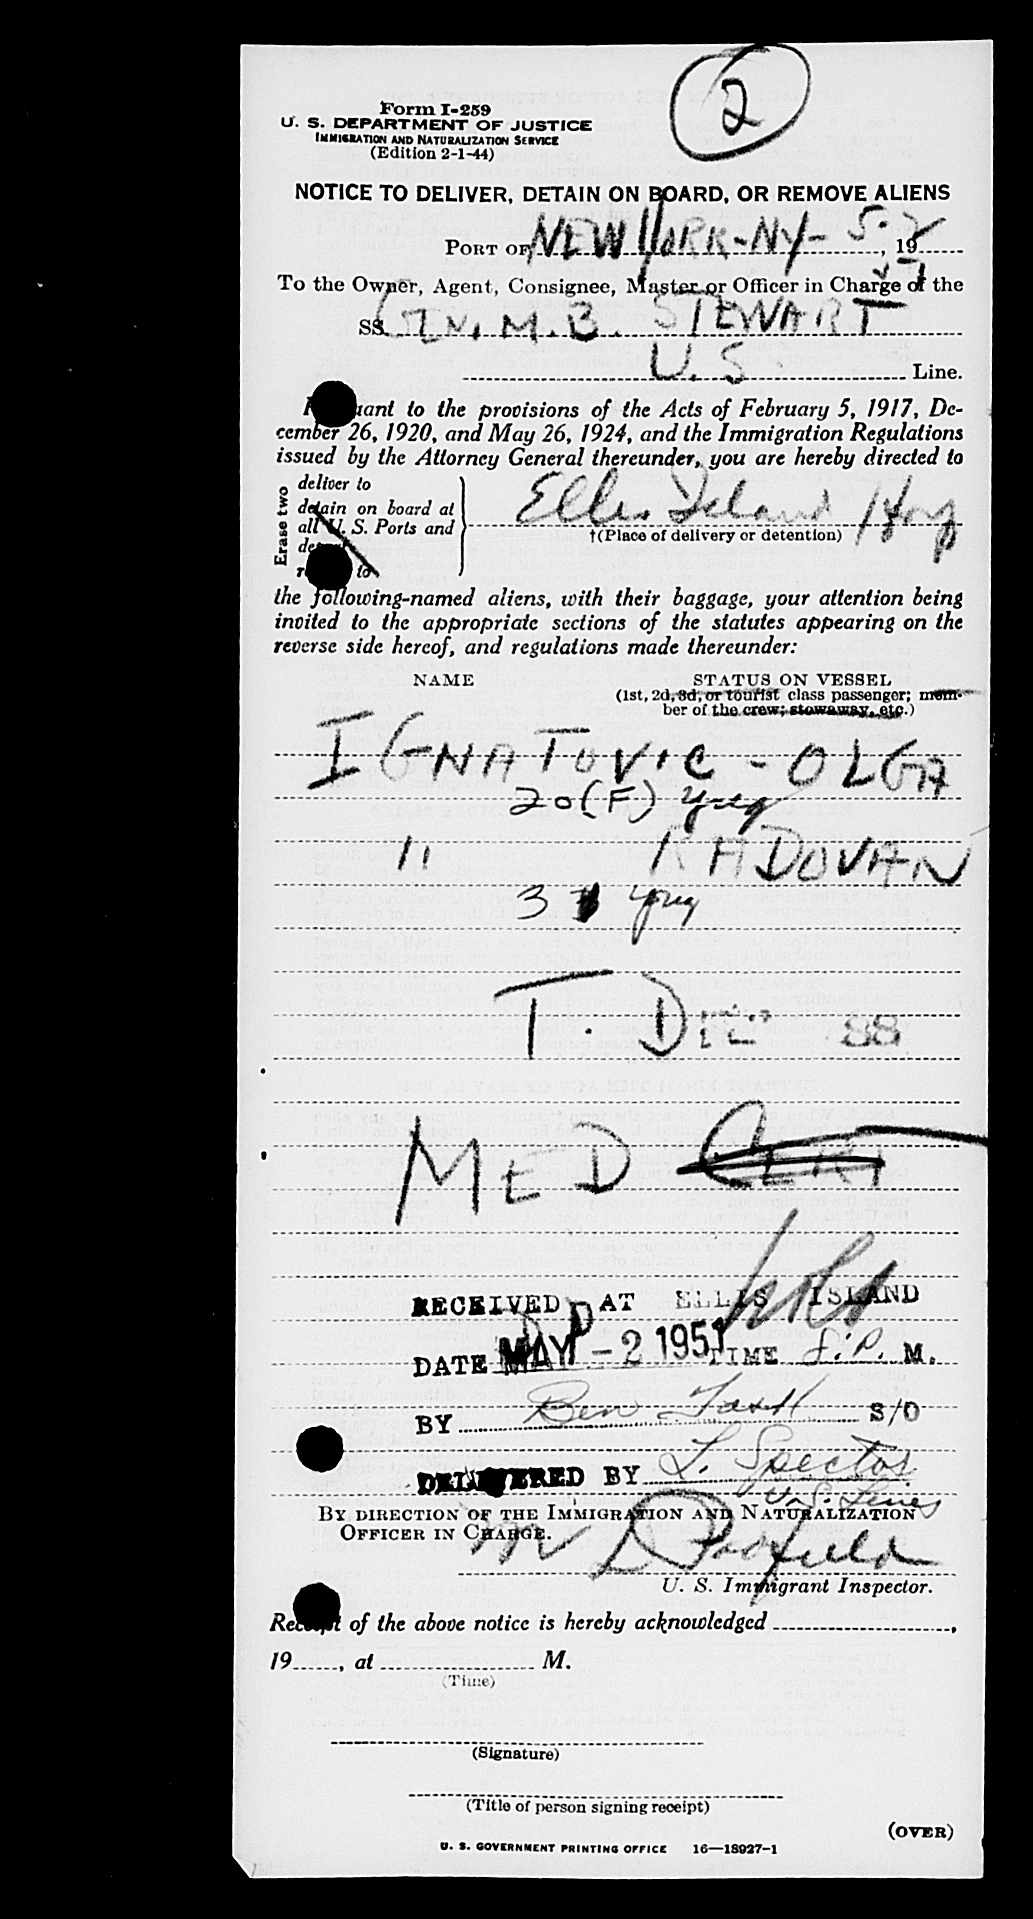 2
Form I-259
U. S. DEPARTMENT OF JUSTICE
IMMIGRATION AND NATURALIZATION SERVICE
(Edition 2-1-44)
NOTICE TO DELIVER, DETAIN ON BOARD, OR REMOVE ALIENS
PORT OF NEW YORK-NY- 5-2, 19 51
To the Owner, Agent, Consignee, Master or Officer in Charge of the
SS GEN. M. B. STEWART
U. S. Line.
Pursuant to the provisions of the Acts of February 5, 1917, De-
cember 26, 1920, and May 26, 1924, and the Immigration Regulations
issued by the Attorney General thereunder, you are hereby directed to
Erase two
deliver to
detain on board at
all U. S. Ports and
Ellis Island Hosp
†(Place of delivery or detention)
to
the following-named aliens, with their baggage, your attention being
invited to the appropriate sections of the statutes appearing on the
reverse side hereof, and regulations made thereunder:
NAME STATUS ON VESSEL
(1st, 2d, 3d, or tourist class passenger; mem-
ber of the crew; stowaway, etc.)
IGNATOVIC - OLGA
20 (F) Yug
" RADOVAN
3 Yug
T. D 88
MED CERT
RECEIVED AT ELLIS ISLAND
DATE MAY - 2 1951 TIME P. M.
BY Ben S/O
DELIVERED BY L. Spector
U. S. Lines
BY DIRECTION OF THE IMMIGRATION AND NATURALIZATION
OFFICER IN CHARGE.
U. S. Immigrant Inspector.
Receipt of the above notice is hereby acknowledged ,
19 , at M.
(Time)
(Signature)
(Title of person signing receipt)
(OVER)
U. S. GOVERNMENT PRINTING OFFICE 16—18927-1